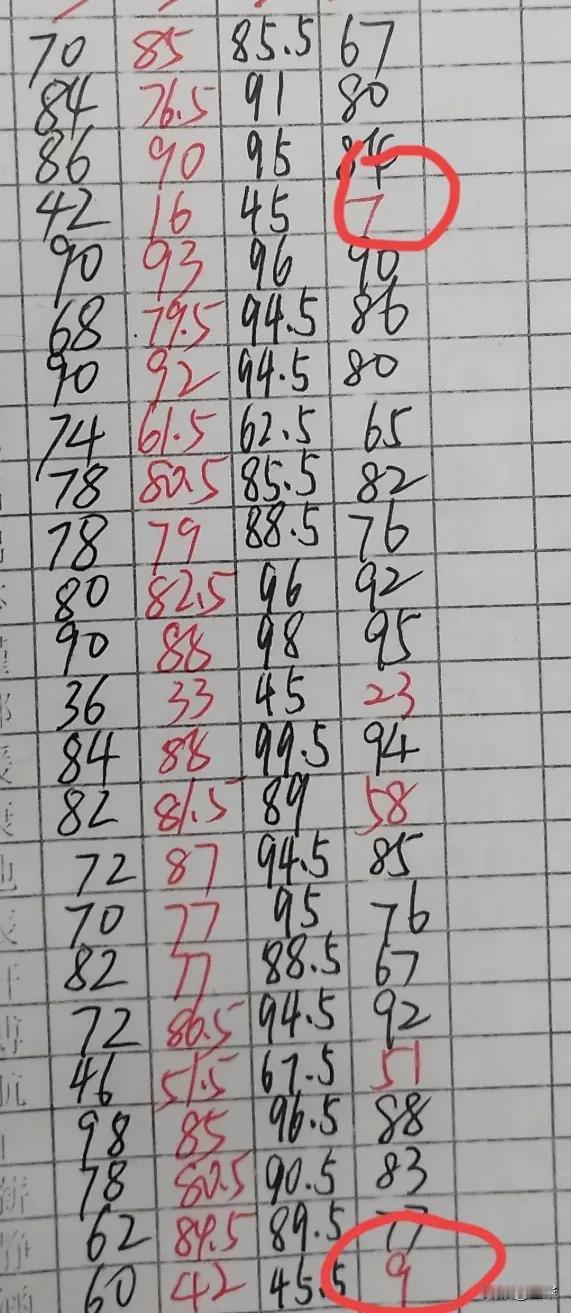 70 85 85.5 67
84 76.5 91 80
86 90 95 84
42 16 45 7
90 93 96 90
68 79.5 94.5 86
90 92 94.5 80
74 61.5 62.5 65
78 80.5 85.5 82
78 79 88.5 76
80 82.5 96 92
90 88 98 95
36 33 45 23
84 88 99.5 94
82 81.5 89 58
72 87 94.5 85
70 77 95 76
82 77 88.5 67
72 80.5 94.5 92
46 51.5 67.5 51
98 85 96.5 88
78 80.5 90.5 83
静 62 84.5 89.5 77
60 42 45.5 9